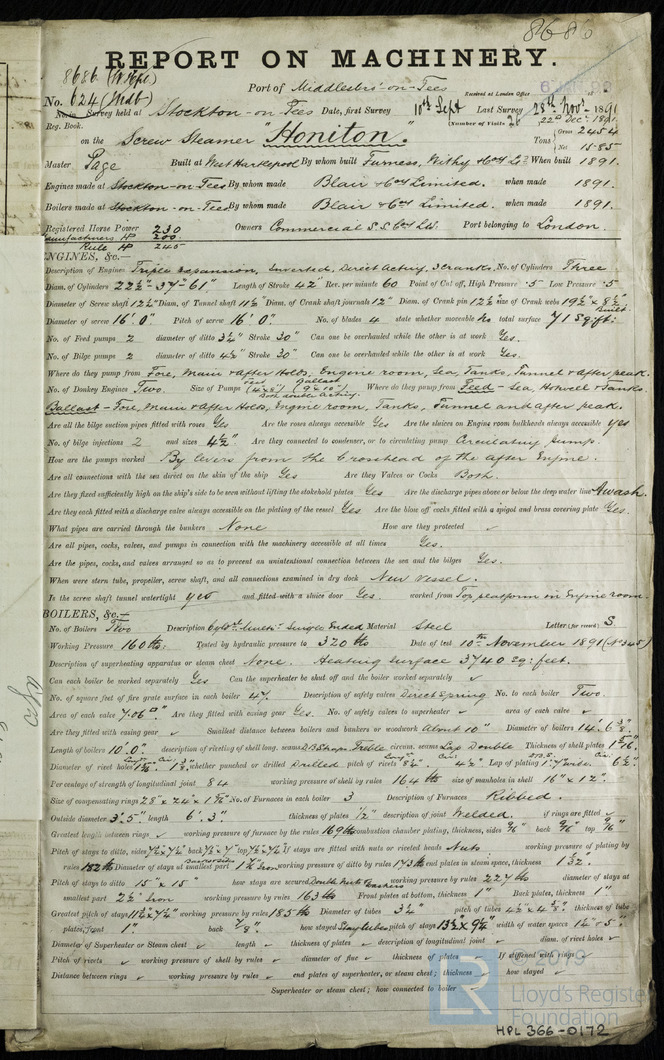 8686
REPORT ON MACHINERY.
8686 (W.Hpl)
Port of Middlesbro'-on-Tees
Received at London Office
No. 624 (Mdb)
No. in Survey held at Stockton-on-Tees Date, first Survey 10th Sept Last Survey 28th Nov 1891
Reg. Book. (Number of Visits 28) 22d Dec: 1891
on the Screw Steamer "Honiton" Tons Gross 2454 Net 1585
Master Page Built at West Hartlepool By whom built Furness, Withy & Co Ld When built 1891.
Engines made at Stockton-on-Tees By whom made Blair & Coy Limited. when made 1891.
Boilers made at Stockton-on-Tees By whom made Blair & Coy Limited. when made 1891.
Registered Horse Power 230 Owners Commercial S.S. Coy Ld. Port belonging to London
Manufacturers HP 200
Rule HP 245
ENGINES, &c.—
Description of Engines Triple expansion, Inverted, Direct Acting, 3 cranks. No. of Cylinders Three
Diam. of Cylinders 22½"-37"-61" Length of Stroke 42" Rev. per minute 60 Point of Cut off, High Pressure .5 Low Pressure .5
Diameter of Screw shaft 12½" Diam. of Tunnel shaft 11½" Diam. of Crank shaft journals 12" Diam. of Crank pin 12½" size of Crank webs 19½" x 8½" Built
Diameter of screw 16'.0" Pitch of screw 16'.0" No. of blades 4 state whether moveable No total surface 71 sq. ft.
No. of Feed pumps 2 diameter of ditto 3½" Stroke 30" Can one be overhauled while the other is at work Yes.
No. of Bilge pumps 2 diameter of ditto 4½" Stroke 30" Can one be overhauled while the other is at work Yes.
Where do they pump from Fore, Main & after Holds, Engine room, Sea, Tanks, Tunnel & after peak.
No. of Donkey Engines Two. Size of Pumps Feed (4 x 8") Ballast (9 x 10") Both double acting. Where do they pump from Feed - Sea, Hotwell & Tanks
Ballast - Fore, Main & after Holds, Engine room, Tanks, Tunnel and after peak.
Are all the bilge suction pipes fitted with roses Yes Are the roses always accessible Yes Are the sluices on Engine room bulkheads always accessible yes
No. of bilge injections 2 and sizes 4½" Are they connected to condenser, or to circulating pump Circulating pump.
How are the pumps worked By levers from the Crosshead of the after Engine.
Are all connections with the sea direct on the skin of the ship Yes Are they Valves or Cocks Both.
Are they fixed sufficiently high on the ship's side to be seen without lifting the stokehold plates Yes Are the discharge pipes above or below the deep water line Awash.
Are they each fitted with a discharge valve always accessible on the plating of the vessel Yes Are the blow off cocks fitted with a spigot and brass covering plate Yes.
What pipes are carried through the bunkers None How are they protected ✓
Are all pipes, cocks, valves, and pumps in connection with the machinery accessible at all times Yes.
Are the pipes, cocks, and valves arranged so as to prevent an unintentional connection between the sea and the bilges Yes.
When were stern tube, propeller, screw shaft, and all connections examined in dry dock New Vessel.
Is the screw shaft tunnel watertight yes and fitted with a sluice door Yes. worked from Top platform in Engine room.
BOILERS, &c.—
No. of Boilers Two Description Single Ended Material Steel Letter (for record) S
Working Pressure 160 lbs: Tested by hydraulic pressure to 320 lbs Date of test 10th November 1891 (No 345)
Description of superheating apparatus or steam chest None. Heating surface 3740 sq: feet.
Can each boiler be worked separately Yes Can the superheater be shut off and the boiler worked separately ✓
No. of square feet of fire grate surface in each boiler 47. Description of safety valves Direct Spring No. to each boiler Two.
Area of each valve 7.06" Are they fitted with easing gear Yes. No. of safety valves to superheater ✓ area of each valve ✓
Are they fitted with easing gear ✓ Smallest distance between boilers and bunkers or woodwork About 10" Diameter of boilers 14'.6⅜"
Length of boilers 10'.0" description of riveting of shell long. seams Treble circum. seams Lap Double Thickness of shell plates 1 5/16"
Diameter of rivet holes whether punched or drilled Drilled pitch of rivets 8¼" 4½" Lap of plating 6½"
Per centage of strength of longitudinal joint 84 working pressure of shell by rules 164 lbs size of manholes in shell 16" x 12"
Size of compensating rings No. of Furnaces in each boiler 3 Description of Furnaces Ribbed.
Outside diameter 3'.5" length 6'.3" thickness of plates ½" description of joint Welded. if rings are fitted ✓
Greatest length between rings ✓ working pressure of furnace by the rules 169 lbs combustion chamber plating, thickness, sides 9/16" back 9/16" top 9/16"
Pitch of stays to ditto, sides back top If stays are fitted with nuts or riveted heads Nuts working pressure of plating by
rules 182 lbs Diameter of stays at smallest part working pressure of ditto by rules 173 lbs end plates in steam space, thickness 1 1/32"
Pitch of stays to ditto 15" x 15" how stays are secured Double Nuts & washers working pressure by rules 227 lbs diameter of stays at
smallest part 2½" Iron working pressure by rules 163 lbs Front plates at bottom, thickness 1" Back plates, thickness 1"
Greatest pitch of stays working pressure by rules 185 lbs Diameter of tubes 3¼" pitch of tubes 4½" x 4⅜" thickness of tube
plates, front 1" back ⅞" how stayed Stay tubes pitch of stays 13½ x 9¼" width of water spaces
Diameter of Superheater or Steam chest ✓ length ✓ thickness of plates ✓ description of longitudinal joint ✓ diam. of rivet holes ✓
Pitch of rivets ✓ working pressure of shell by rules ✓ diameter of flue ✓ thickness of plates ✓ If stiffened with rings ✓
Distance between rings ✓ working pressure by rules ✓ end plates of superheater, or steam chest; thickness ✓ how stayed ✓
Superheater or steam chest; how connected to boiler ✓
LR
© 2019
Lloyd's Register
Foundation
HPL 366-0172